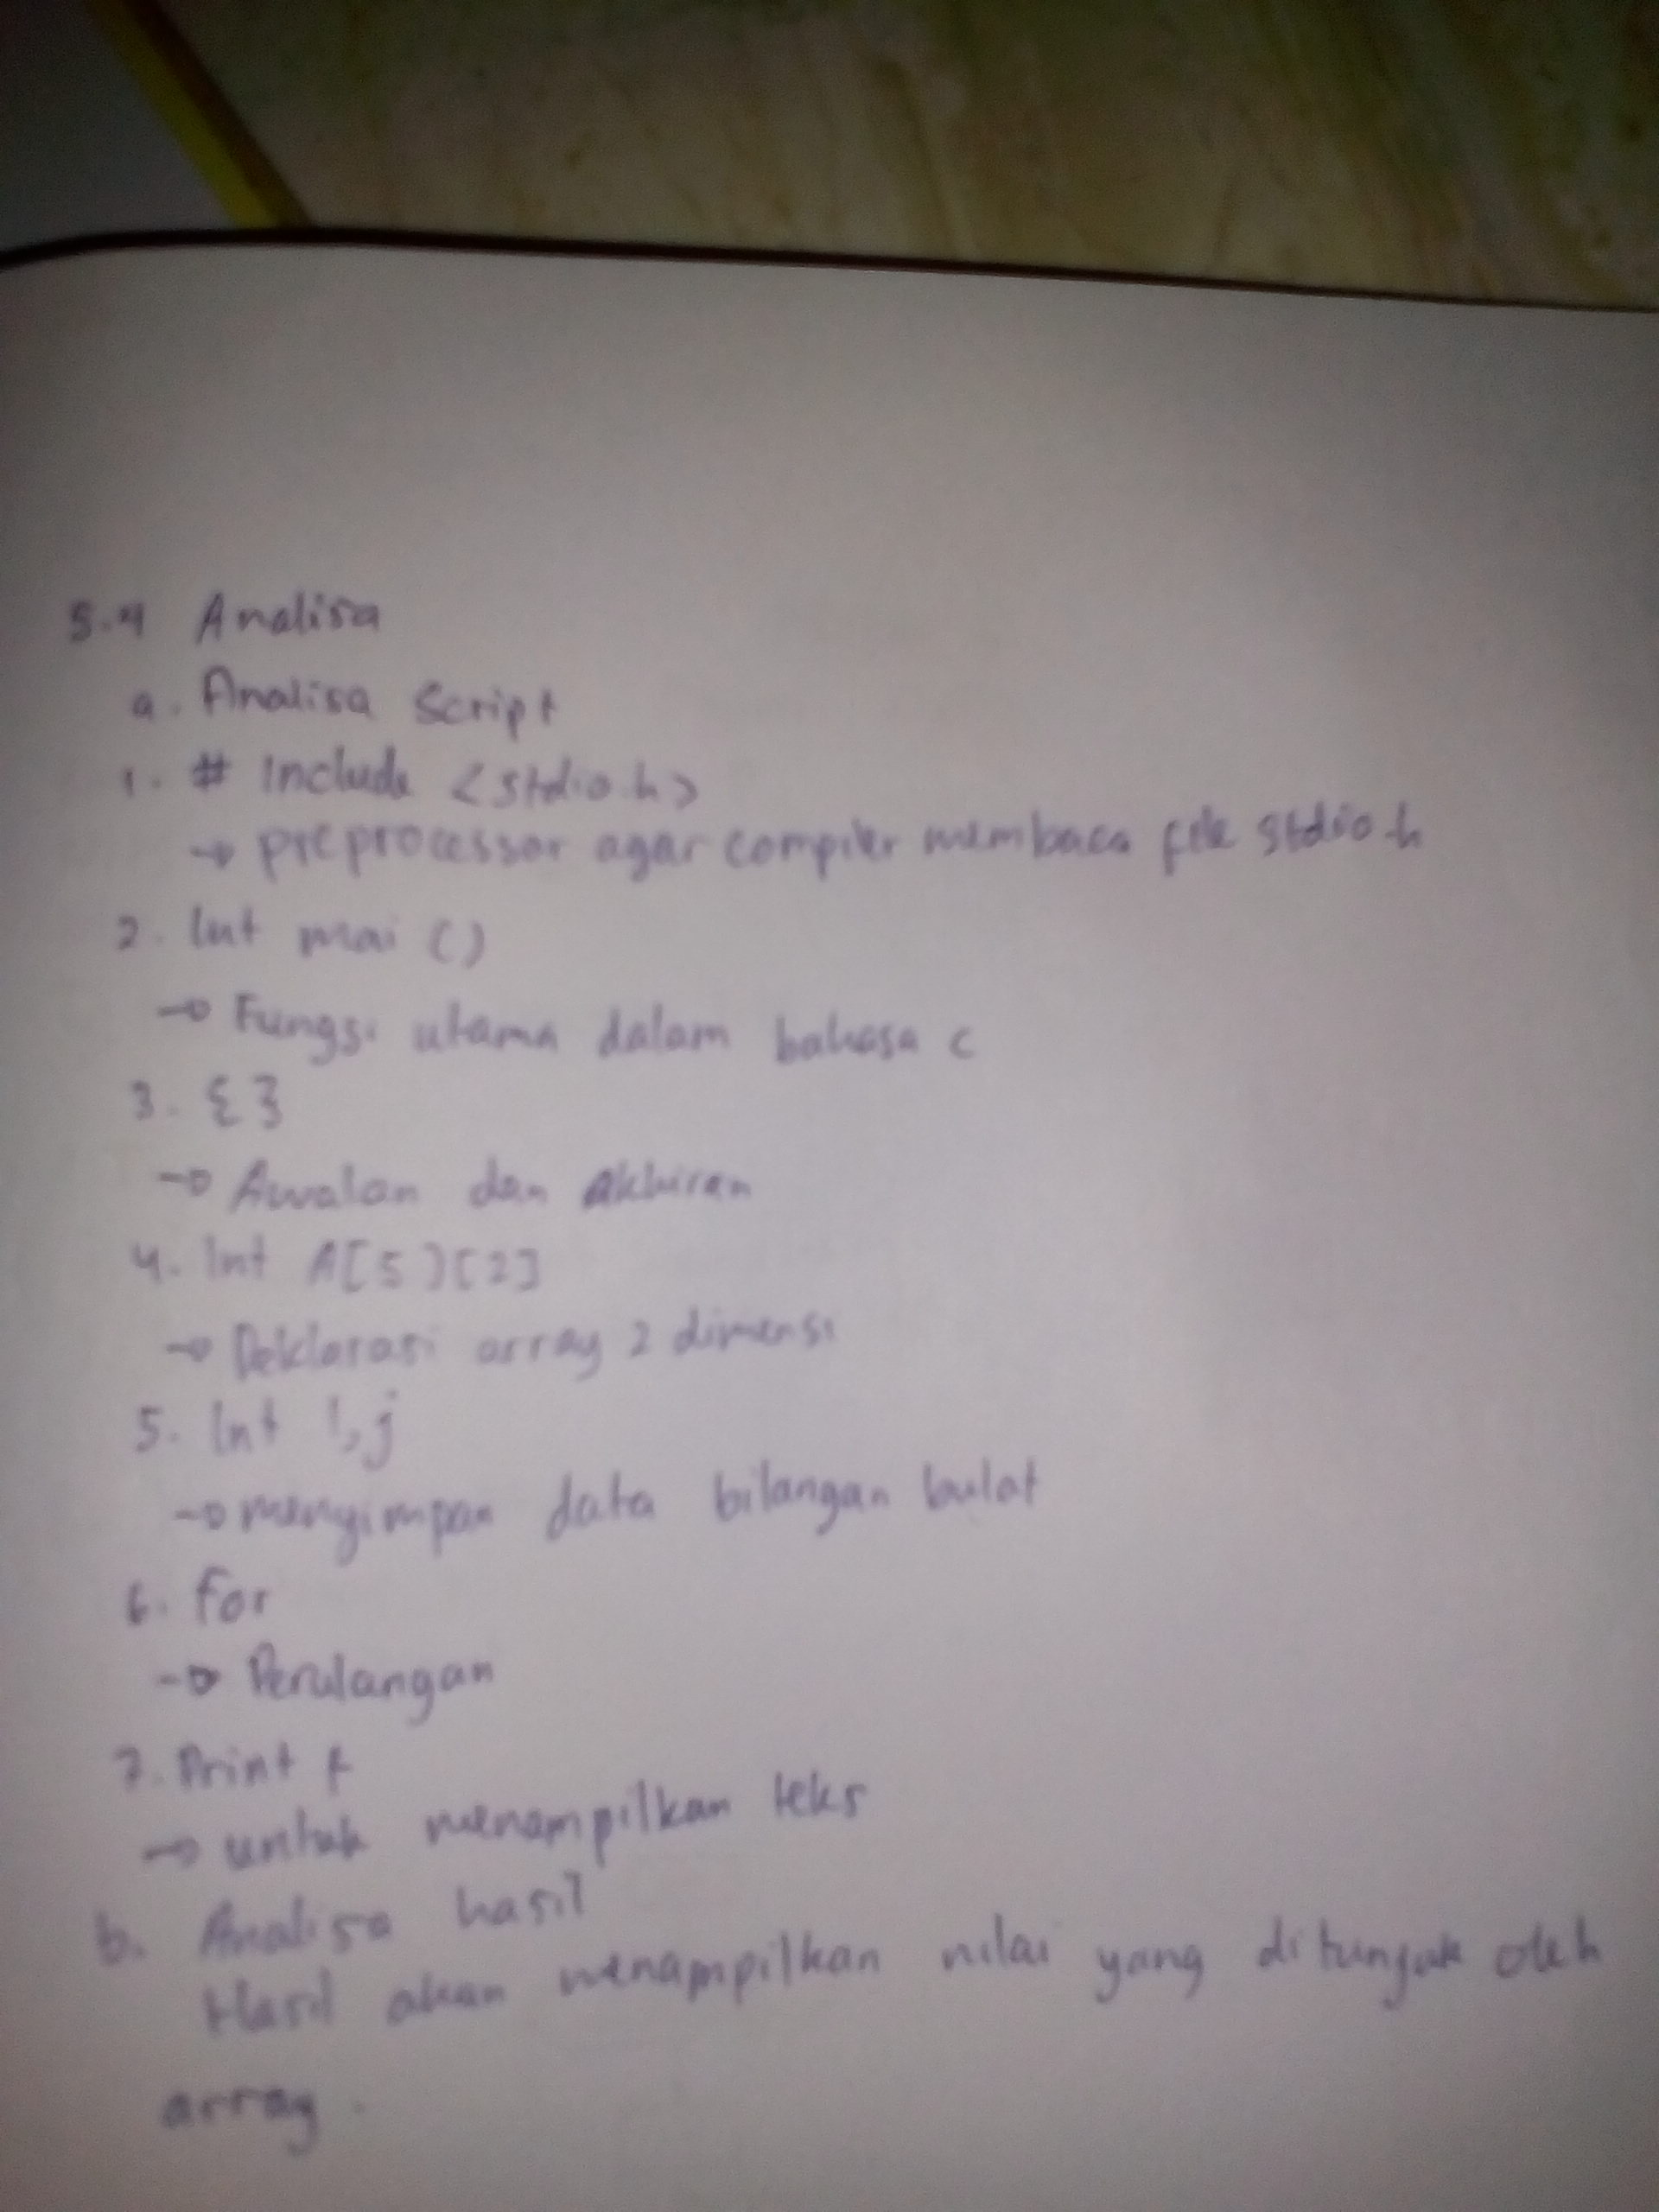 5.4 Analisa
a. Analisa Script
1. # Include <stdio.h>
→ preprocessor agar compiler membaca file stdio.h
2. Int mai ()
→ Fungsi utama dalam bahasa c
3. { }
→ Awalan dan akhiran
4. Int A[5][2]
→ Deklarasi array 2 dimensi
5. Int I,j
→ menyimpan data bilangan bulat
6. for
→ Perulangan
7. Print f
→ untuk menampilkan teks
b. Analisa hasil
Hasil akan menampilkan nilai yang ditunjuk oleh
array.